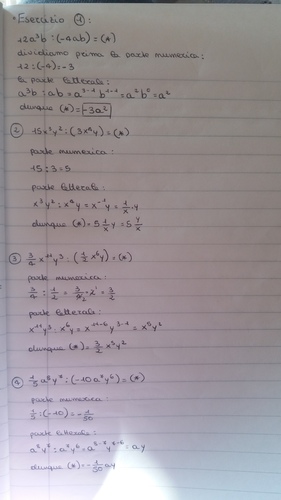 • Esercizio 1:
12a³b : (-4ab) = (*)
dividiamo prima la parte numerica:
12 : (-4) = -3
la parte letterale:
a³b : ab = a³⁻¹ b¹⁻¹ = a²b⁰ = a²
dunque (*) = -3a²
2 15x³y² : (3x⁴y) = (*)
parte numerica:
15 : 3 = 5
parte letterale:
x³y² : x⁴y = x⁻¹y = 1/x · y
dunque (*) = 5 1/x y = 5 y/x
3 3/4 x¹¹y³ : (1/2 x⁶y) = (*)
parte numerica:
3/4 : 1/2 = 3/4 · 2 = 3/2
parte letterale:
x¹¹y³ : x⁶y = x¹¹⁻⁶ y³⁻¹ = x⁵y²
dunque (*) = 3/2 x⁵y²
4
parte numerica:
1/5 : (-10) = -1/50
parte letterale:
dunque (*) = -1/50 ay